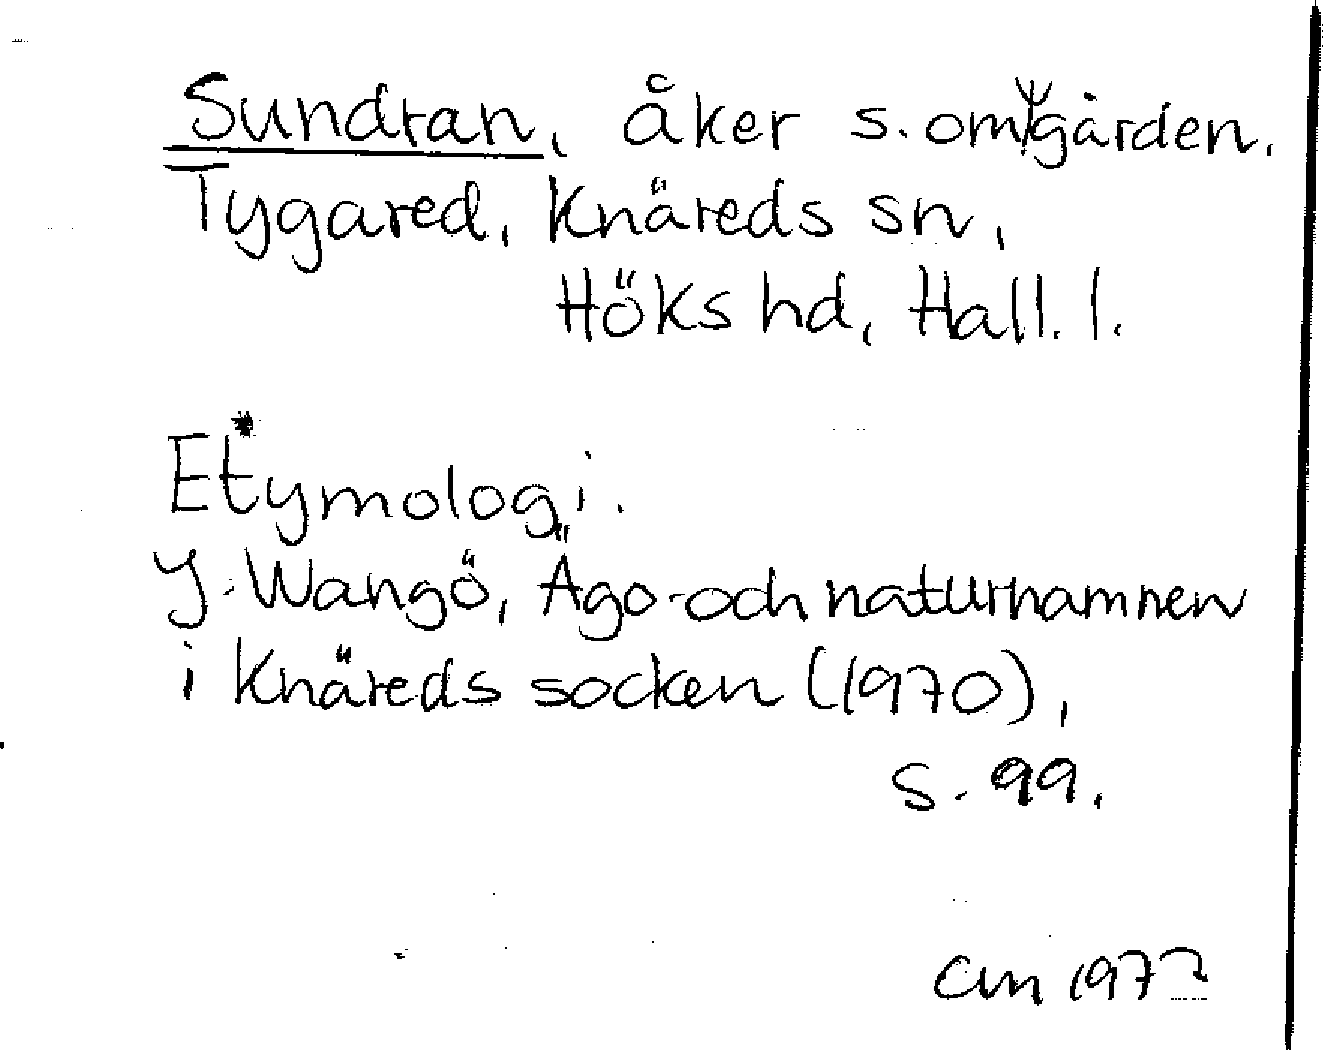 Sundran, åker s. om gården.
Tygared, Knäreds sn,
Höks hd, Hall. l.
Etymologi.
J. Wangö, Ägo- och naturnamnen
i Knäreds socken (1970),
s. 99.